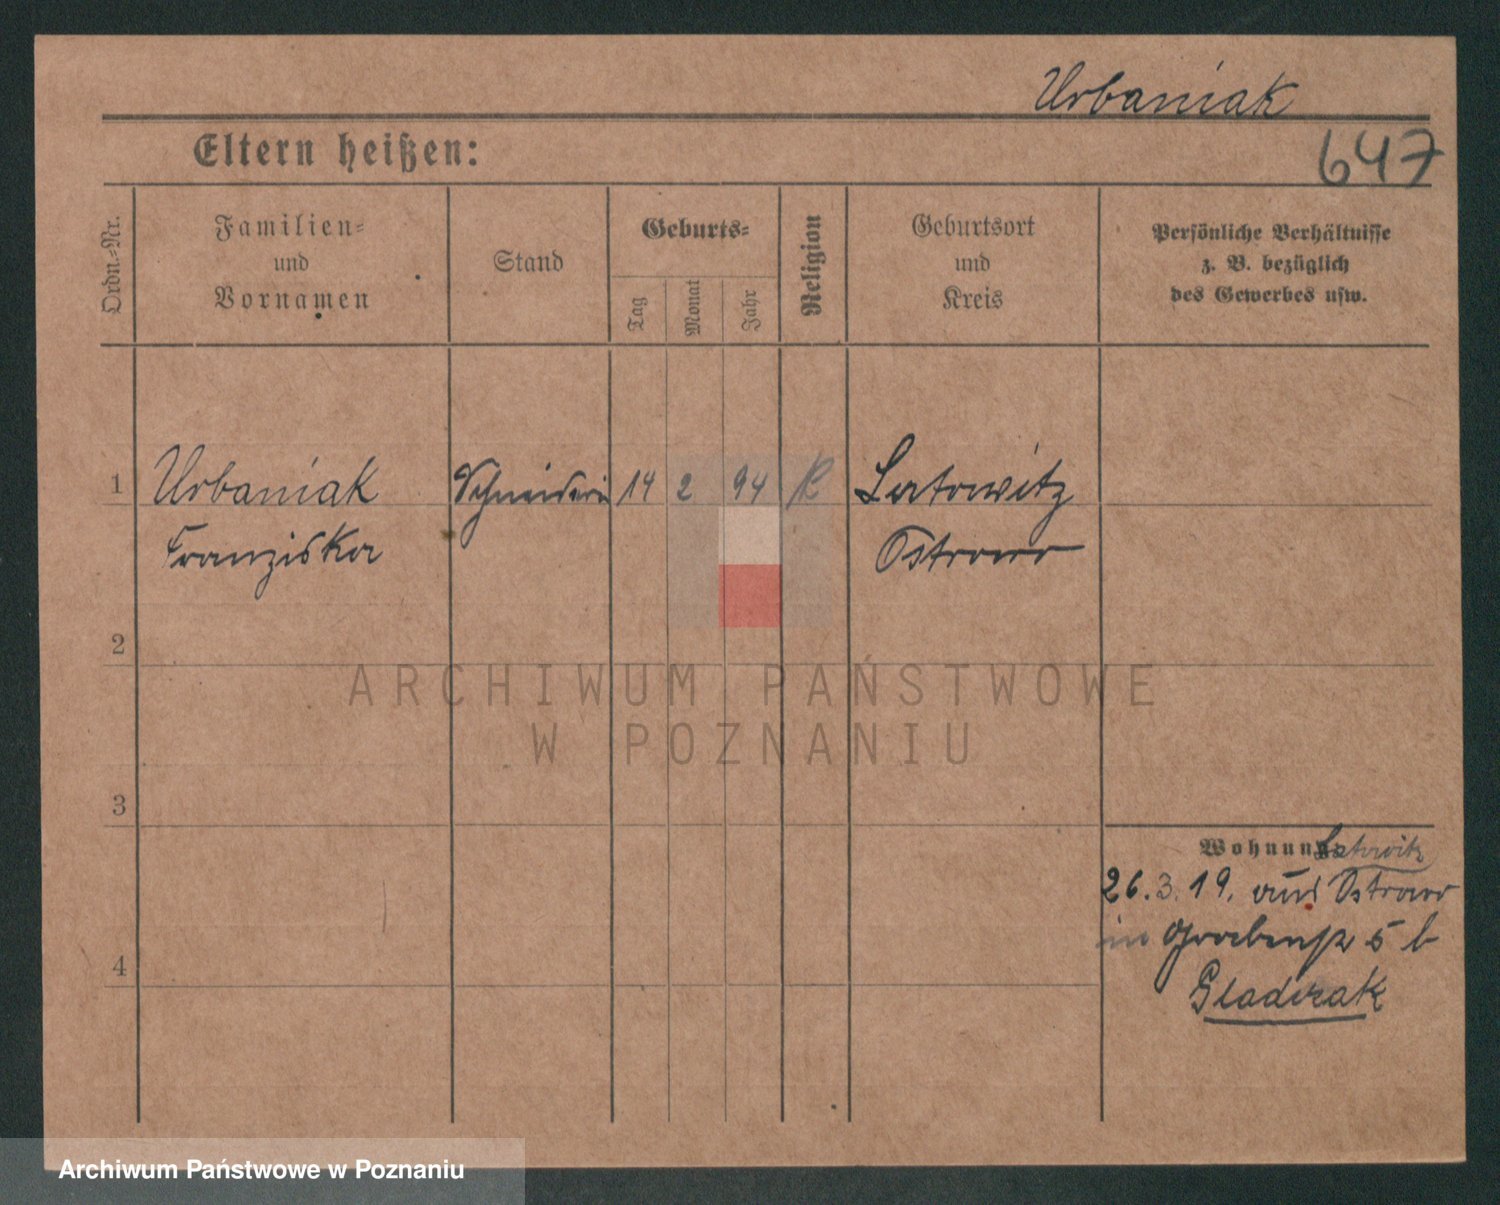 Urbaniak
Eltern heißen:
647
Ordn.-Nr.
Familien-
und
Vornamen
Stand
Geburts-
Tag
Monat
Jahr
Religion
Geburtsort
und
Kreis
Persönliche Verhältnisse
z. B. bezüglich
des Gewerbes usw.
1 Urbaniak Schneiderin 14 2 94 K Latowitz
Franziska Ostrowo
2
ARCHIWUM PAŃSTWOWE
W POZNANIU
3
Wohnung Latowitz
26. 3. 19. aus Ostrowo
in Grabenstr 5 b
4
Archiwum Państwowe w Poznaniu